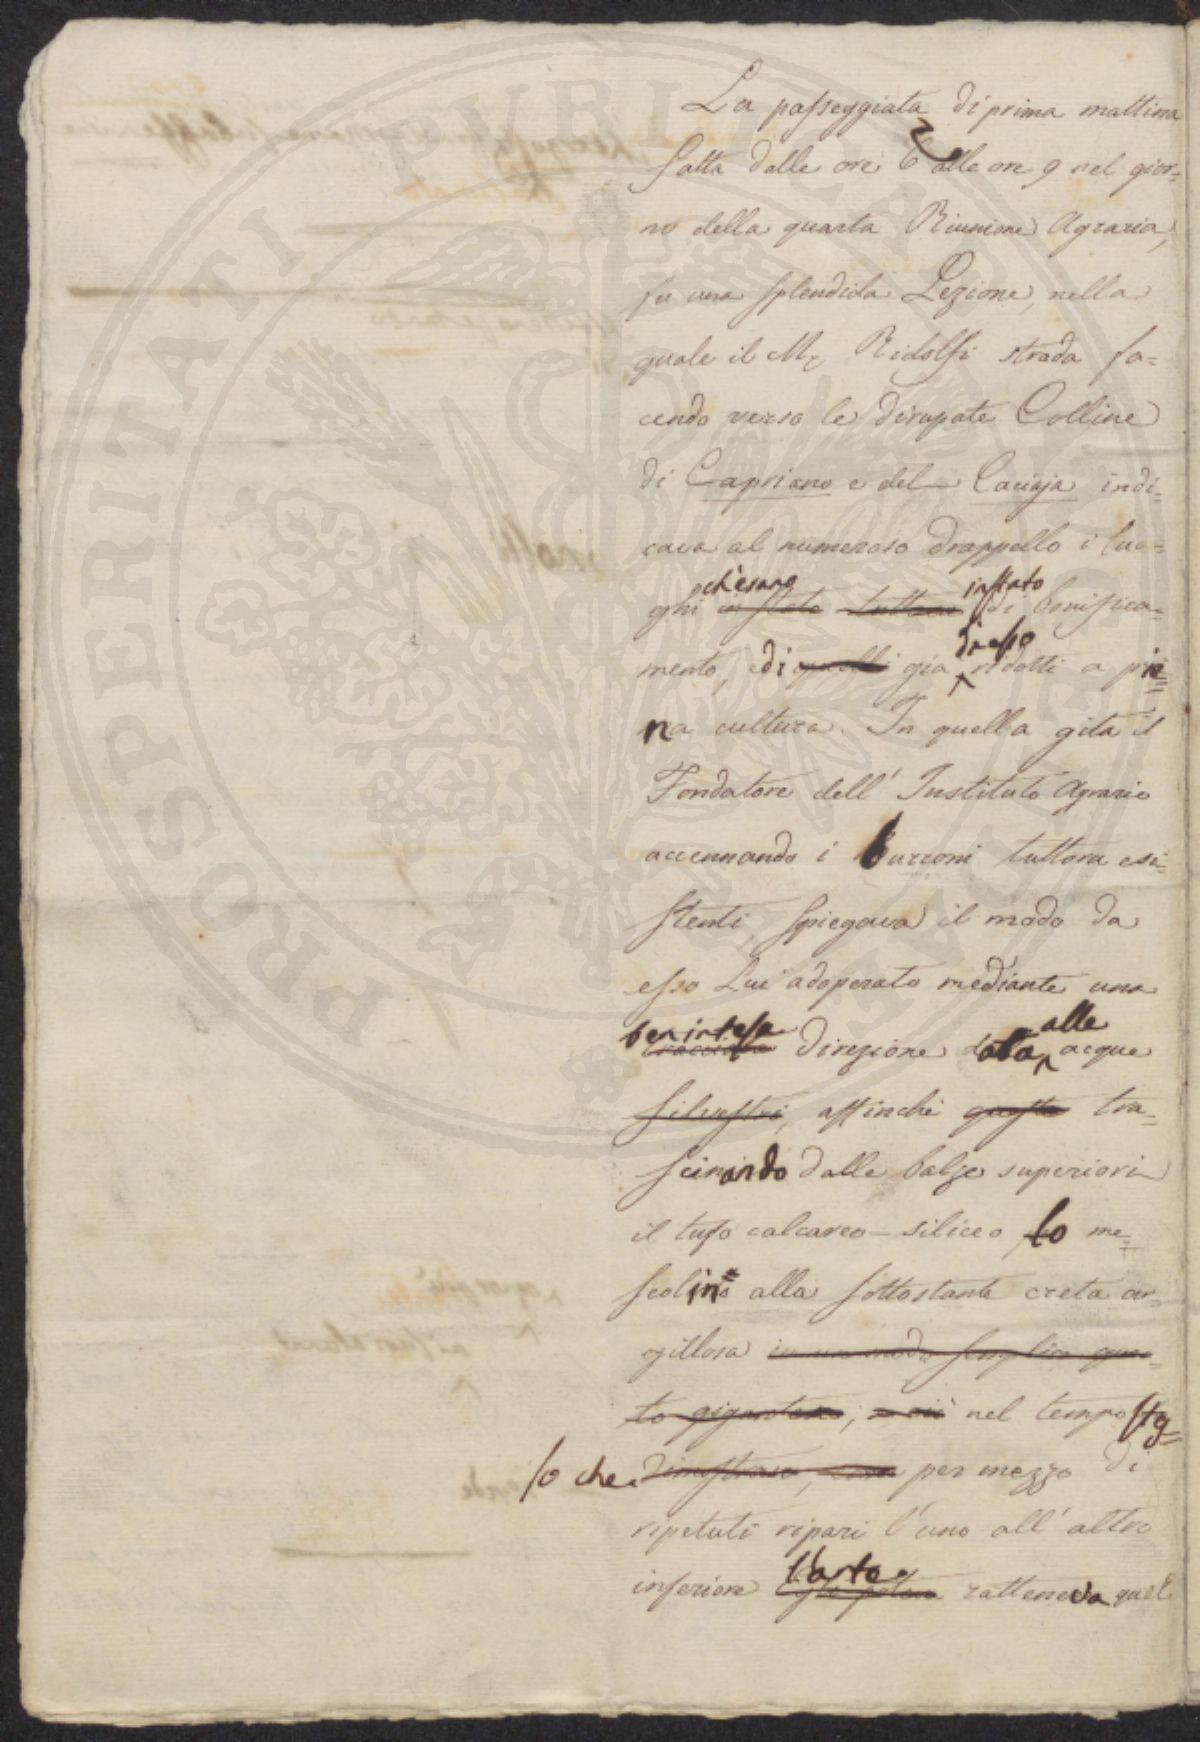 La passeggiata di prima mattina
fatta dalle ore 6 alle ore 9 nel gior=
no della quarta Riunione Agraria,
fu una splendida Lezione, nella
quale il M. Ridolfi strada fa=
cendo verso le dirupate Colline
di Capriano e del Caciaja indi=
cava al numeroso drappello i luo=
ch'erano in stato
ghi in stato tuttora di bonifica=
d'esso
mento, e di quelli già ridotti a pie=
na cultura. In quella gita il
Fondatore dell' Instituto Agrario
accennando i burroni tuttora esi=
stenti, spiegava il modo da
esso Lui adoperato mediante una
ben intesa alle
direzione data acque
silvestri, affinchè queste tra=
scinando dalle balze superiori
il tufo calcareo-siliceo lo me=
scolino alla sottostante creta ar=
gillosa in un modo semplice quan=
to gigantesco, nel tempo ste=
so che dimostrava, come per mezzo di
ripetuti ripari l'uno all' altro
l'arte
inferiore ratteneva quel
PROSPERITATI PUBLICAE AUGENDAE